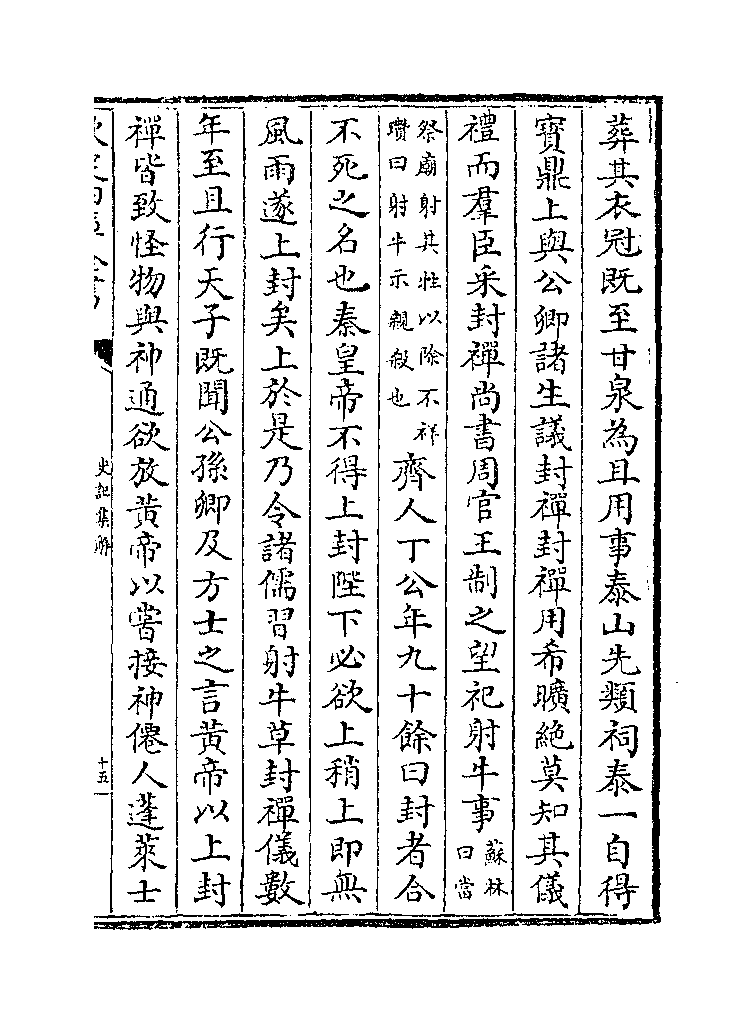 葬其衣冠既至甘泉為且用事泰山先類祠泰一自得
寳鼎上與公卿諸生議封禪封禪用希曠絶莫知其儀
禮而羣臣采封禪尚書周官王制之望祀射牛事蘇林曰當
祭廟射其牲以除不祥瓚曰射牛示親殺也齊人丁公年九十餘曰封者合
不死之名也秦皇帝不得上封陛下必欲上稍上即無
風雨遂上封矣上於是乃令諸儒習射牛草封禪儀數
年至且行天子既聞公孫卿及方士之言黄帝以上封
禪皆致怪物與神通欲放黄帝以嘗接神僊人蓬萊士
史記集解
十五